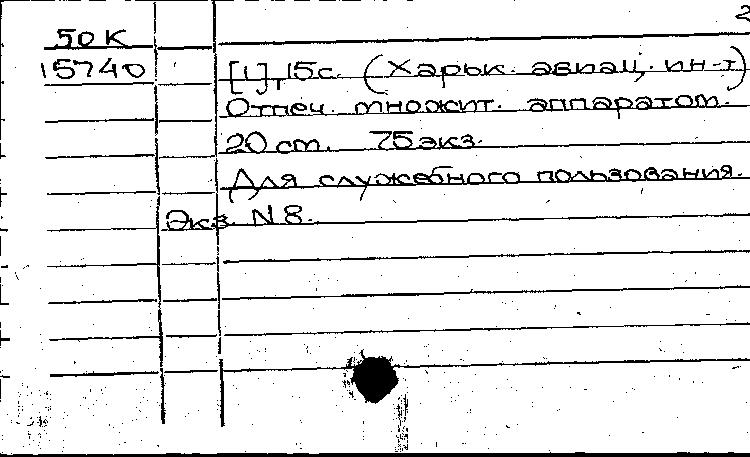 2
50К
15740 [1], 15с. (Харьк. авиац. ин-т)
Отпеч. множит. аппаратом.
20 ст. 75 экз.
Для служебного пользования.
Экз. N 8.